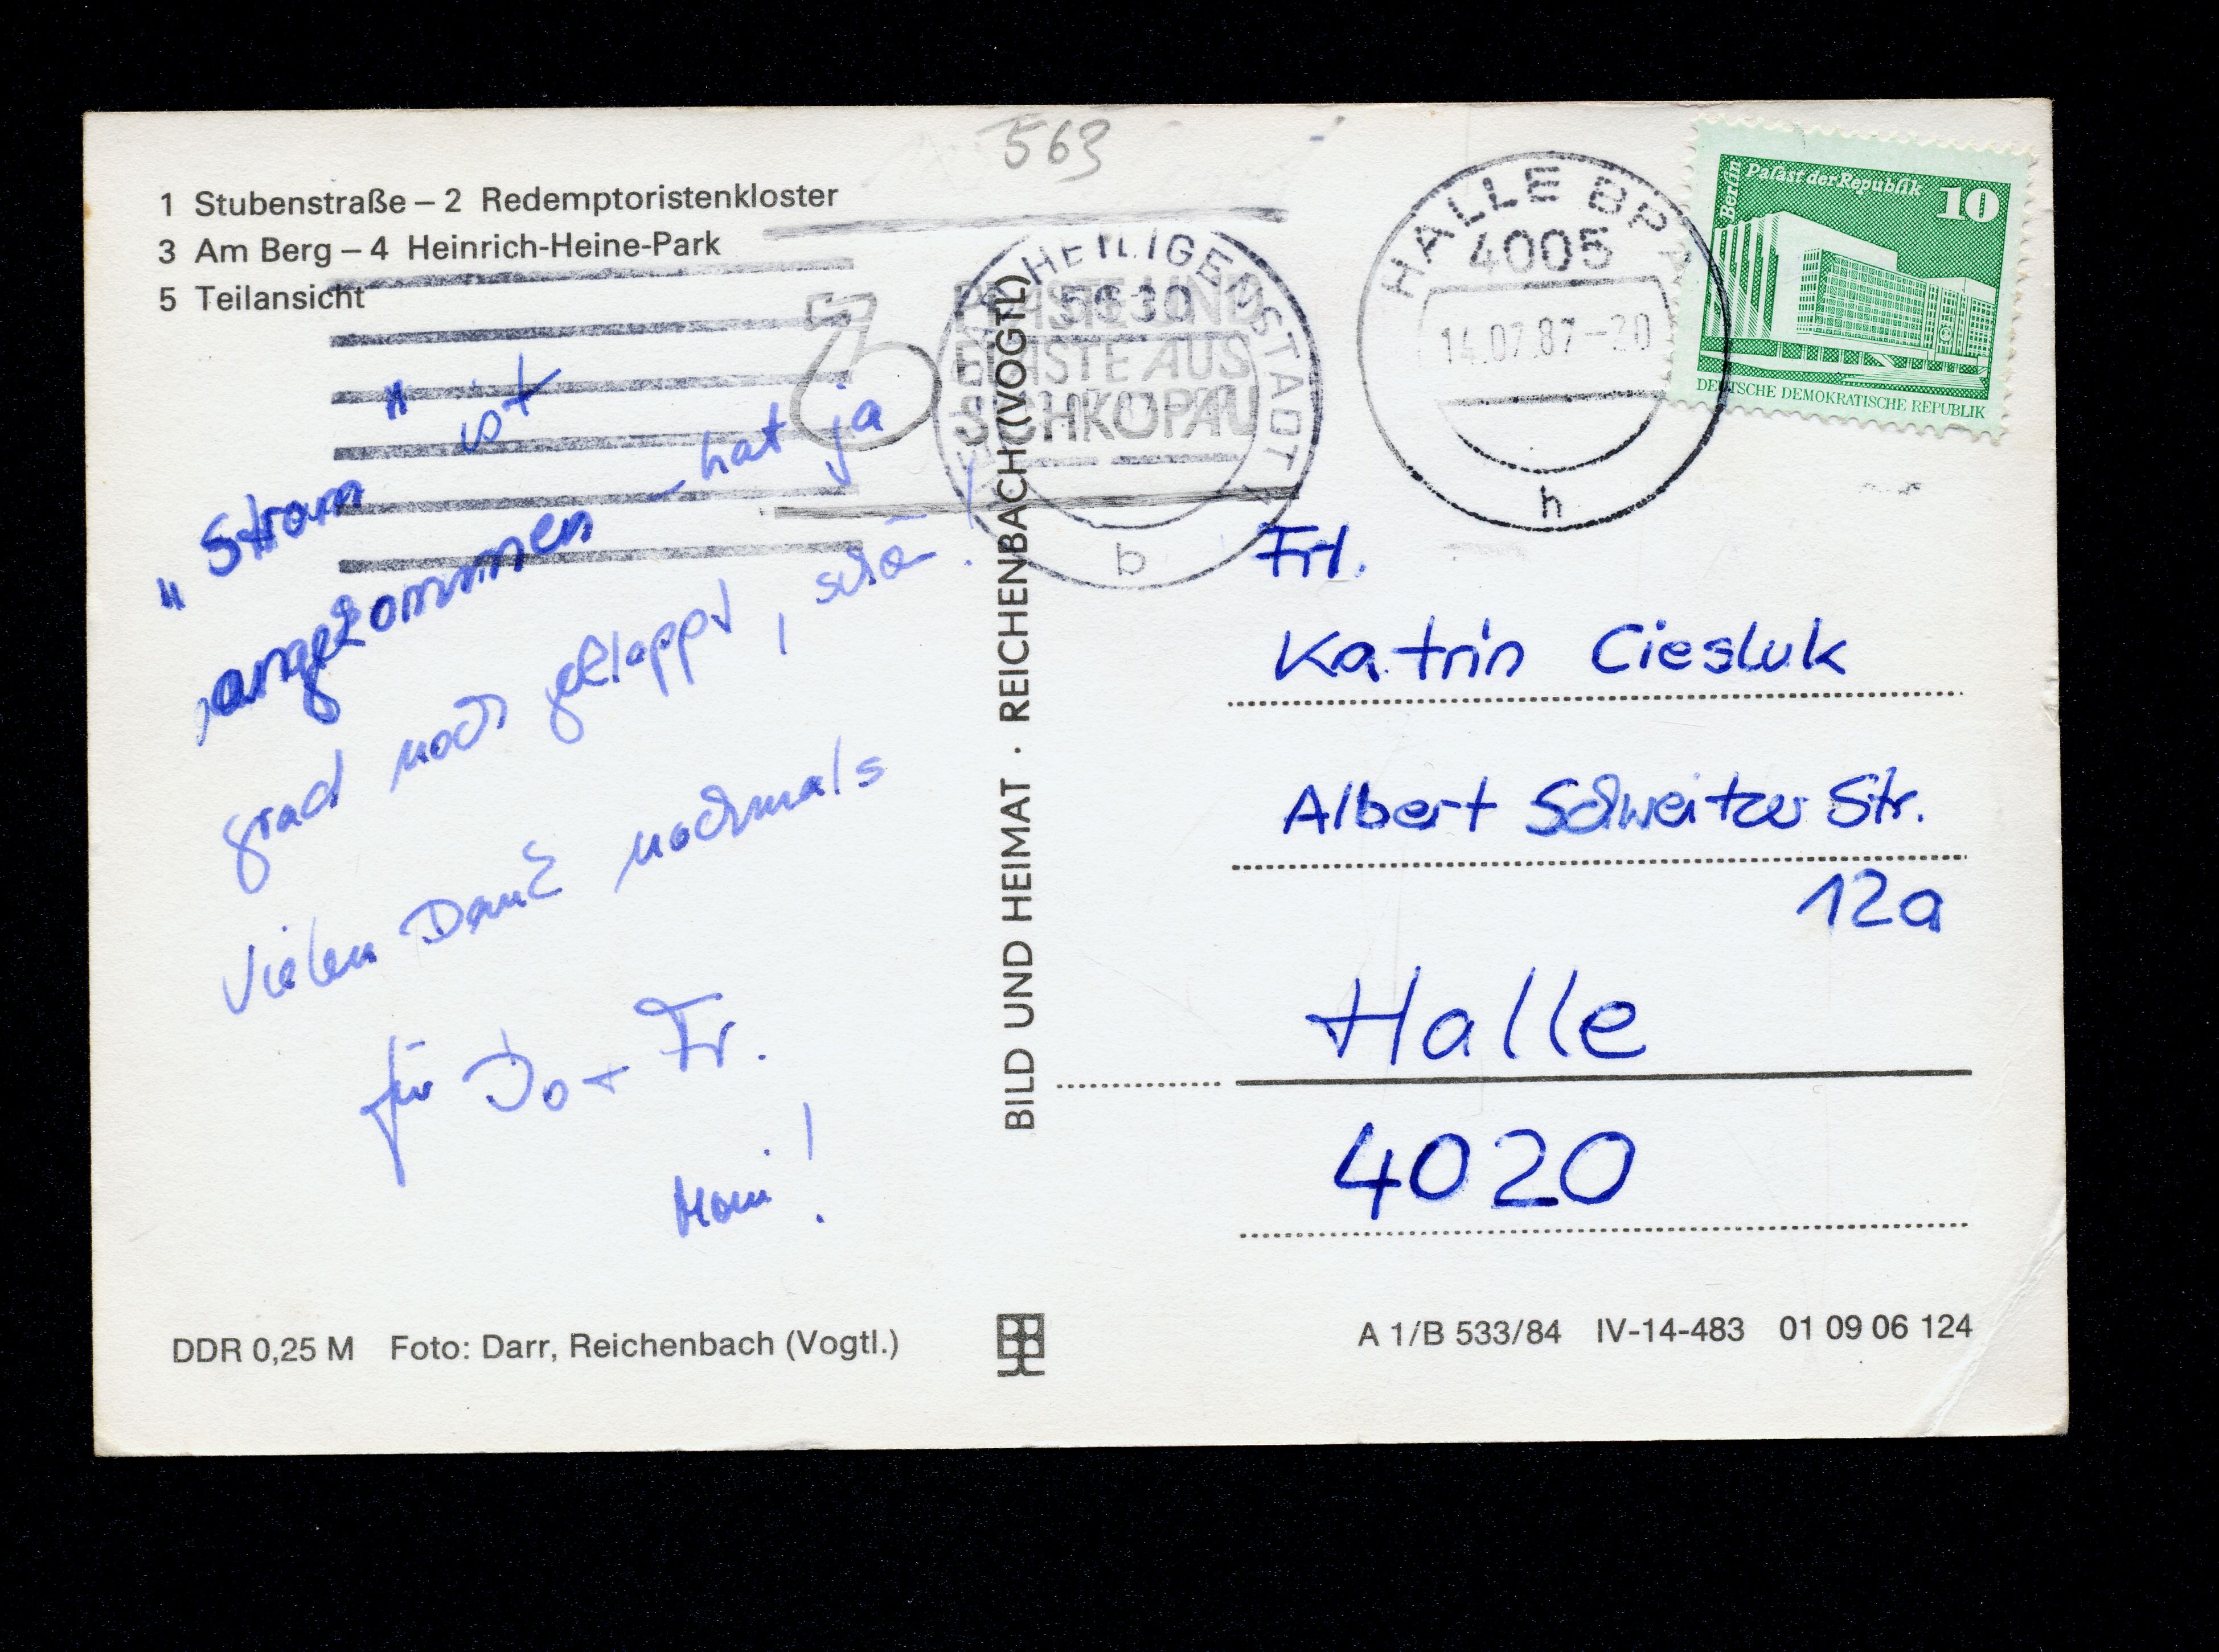 563
1 Stubenstraße – 2 Redemptoristenkloster
3 Am Berg – 4 Heinrich-Heine-Park
5 Teilansicht
HEILIGENSTADT
5630
b
PLASTE UND
ELASTE AUS
SCHKOPAU
HALLE BPA
4005
14.07.87-20
h
Berlin Palast der Republik 10
DEUTSCHE DEMOKRATISCHE REPUBLIK
"Strom" ist
angekommen – hat ja
grad noch geklappt, schön!
Vielen Dank nochmals
für Do + Fr.
Moni!
BILD UND HEIMAT · REICHENBACH (VOGTL)
Frl.
Katrin Ciesluk
Albert Schweitzer Str.
12a
Halle
4020
DDR 0,25 M Foto: Darr, Reichenbach (Vogtl.)
A 1/B 533/84 IV-14-483 01 09 06 124